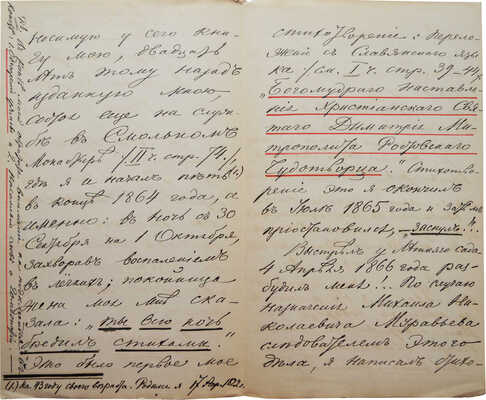 носимую у сего кни-
гу мою, двадцать
лѣтъ тому назадъ
изданную мною,
состоя еще на служ-
бѣ въ Смольномъ
Монастырѣ /II ч. стр. 74./,
гдѣ я и началъ пѣть (1.)
въ концѣ 1864 года, а
именно: въ ночь съ 30
Сентября на 1 Октября,
захворавъ воспаленіемъ
въ лёгкихъ; покойница
жена моя мнѣ ска-
зала: „ты всю ночь
бредилъ стихами."
Это было первое мое
(1.) на 43 году своего возраста. Родился я 17 Апр. 1822 г.
стихотвореніе: перело-
жен съ Славянскаго язы-
ка /см. I ч. стр. 39-44/
„Богомудраго наставле-
нія Христіанскаго Свя-
таго Димитрія Ми-
трополита Ростовскаго
Чудотворца." Стихотво-
реніе это я окончилъ
въ Іюлѣ 1865 года и затѣмъ
пріостановился, — заснулъ!..
Выстрѣлъ у Лѣтняго Сада
4 Апрѣля 1866 года раз-
будилъ меня... По случаю
назначенія Михаила Ни-
колаевича Муравьева
слѣдователемъ этого
дѣла, я написалъ стихо-